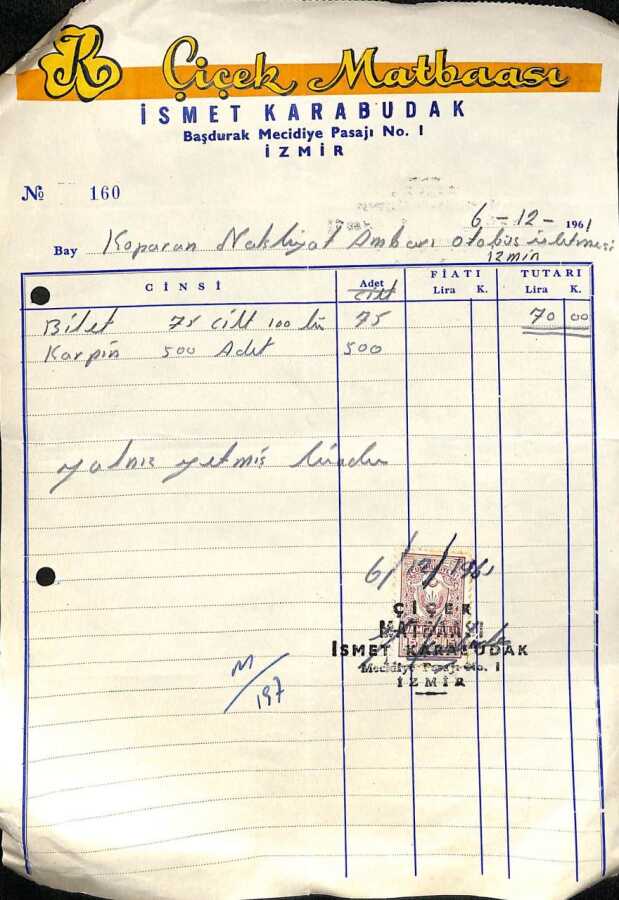 K Çiçek Matbaası
İSMET KARABUDAK
Başdurak Mecidiye Pasajı No. 1
İZMİR
№ 160
6-12-1961
Bay Koparan Nakliyat Ambarı otobüs işletmesi
izmir
CİNSİ Adet FİATI TUTARI
cilt Lira K. Lira K.
Bilet 75 cilt 100 lü 75 70 00
Karpin 500 Adet 500
yalnız yetmiş liradır
6/12/1961
ÇİÇEK
MATBAASI
İSMET KARABUDAK
Mecidiye Pasajı No. 1
İZMİR
M/197